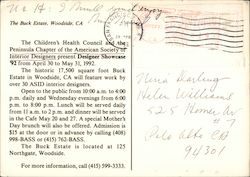 The Buck Estate, Woodside, CA
The Children's Health Council and the
Peninsula Chapter of the American Society of
Interior Designers present Designer Showcase
'92 from April 30 to May 31, 1992.
The historic 17,500 square foot Buck
Estate is Woodside, CA will feature work by
over 30 ASID interior designers.
Open to the public from 10:00 a.m. to 6:00
p.m. daily and Wednesday evenings from 6:00
p.m. to 8:00 p.m. Lunch will be served daily
from 11 a.m. to 2 p.m. and dinner will be served
in the Cafe May 20 and 27. A special Mother's
Day brunch will also be offered. Admission is
$15 at the door or in advance by calling (408)
998-BASS or (415) 762-BASS.
The Buck Estate is located at 125
Northgate, Woodside.
For more information, call (415) 599-3333.
Helen Williams
Palo Alto CA
94301